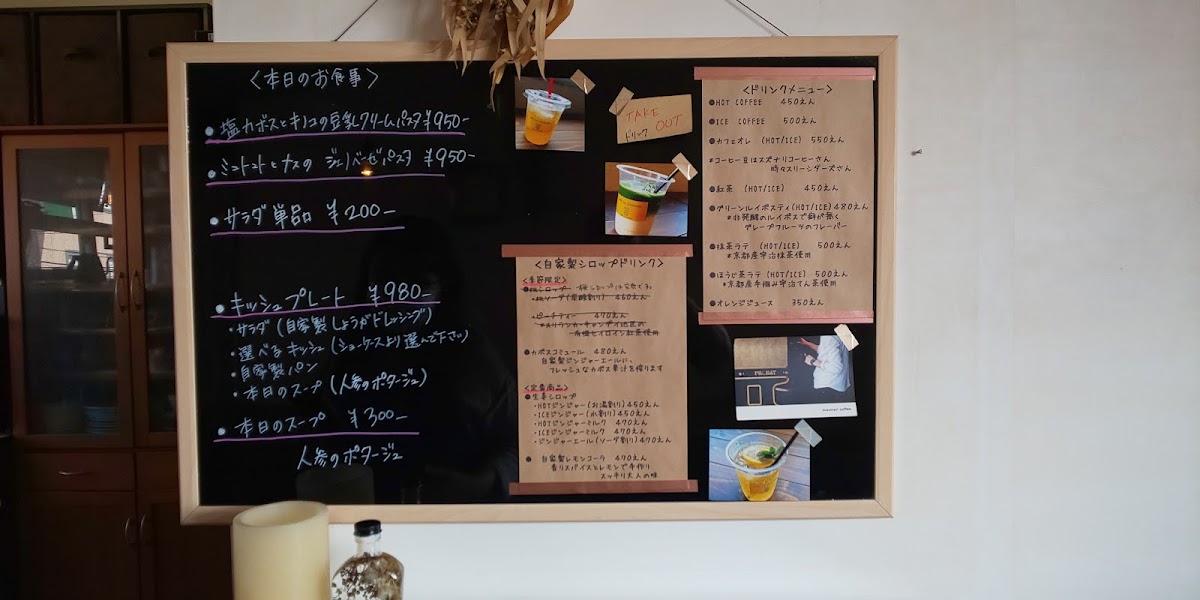 <本日のお食事>
塩カボスとキノコの豆乳クリームパスタ ¥950-
ミニトマトとナスの ジェノベーゼパスタ ¥950-
サラダ単品 ¥200-
キッシュプレート ¥980-
・サラダ (自家製しょうがドレッシング)
・選べるキッシュ (ショーケースより選んで下さい)
・自家製パン
・本日のスープ (人参のポタージュ)
本日のスープ ¥300-
人参のポタージュ
TAKE OUT
ドリンク
<自家製シロップドリンク>
<季節限定>
●桃シロップ
・桃ソーダ(炭酸割り) 450えん
・ピーチティー 470えん
●カボスコミュール 480えん
自家製ジンジャーエールに、
フレッシュなカボス果汁を搾ります
<定番商品>
●生姜シロップ
・HOTジンジャー(お湯割り)450えん
・ICEジンジャー(水割り)450えん
・HOTジンジャーミルク 470えん
・ICEジンジャーミルク 470えん
・ジンジャーエール(ソーダ割り)470えん
● 自家製レモンコーラ 470えん
香りスパイスとレモンで手作り
スッキリ大人の味
<ドリンクメニュー>
●HOT COFFEE 450えん
●ICE COFFEE 500えん
●カフェオレ (HOT/ICE) 550えん
*コーヒー豆はスズナリコーヒーさん
時々スリーシダーズさん
●紅茶 (HOT/ICE) 450えん
●グリーンルイボスティ(HOT/ICE)480えん
*非発酵のルイボスで癖が無く
グレープフルーツのフレーバー
●抹茶ラテ (HOT/ICE) 500えん
*京都産宇治抹茶使用
●ほうじ茶ラテ(HOT/ICE) 500えん
*京都産手摘み宇治てん茶使用
●オレンジジュース 350えん